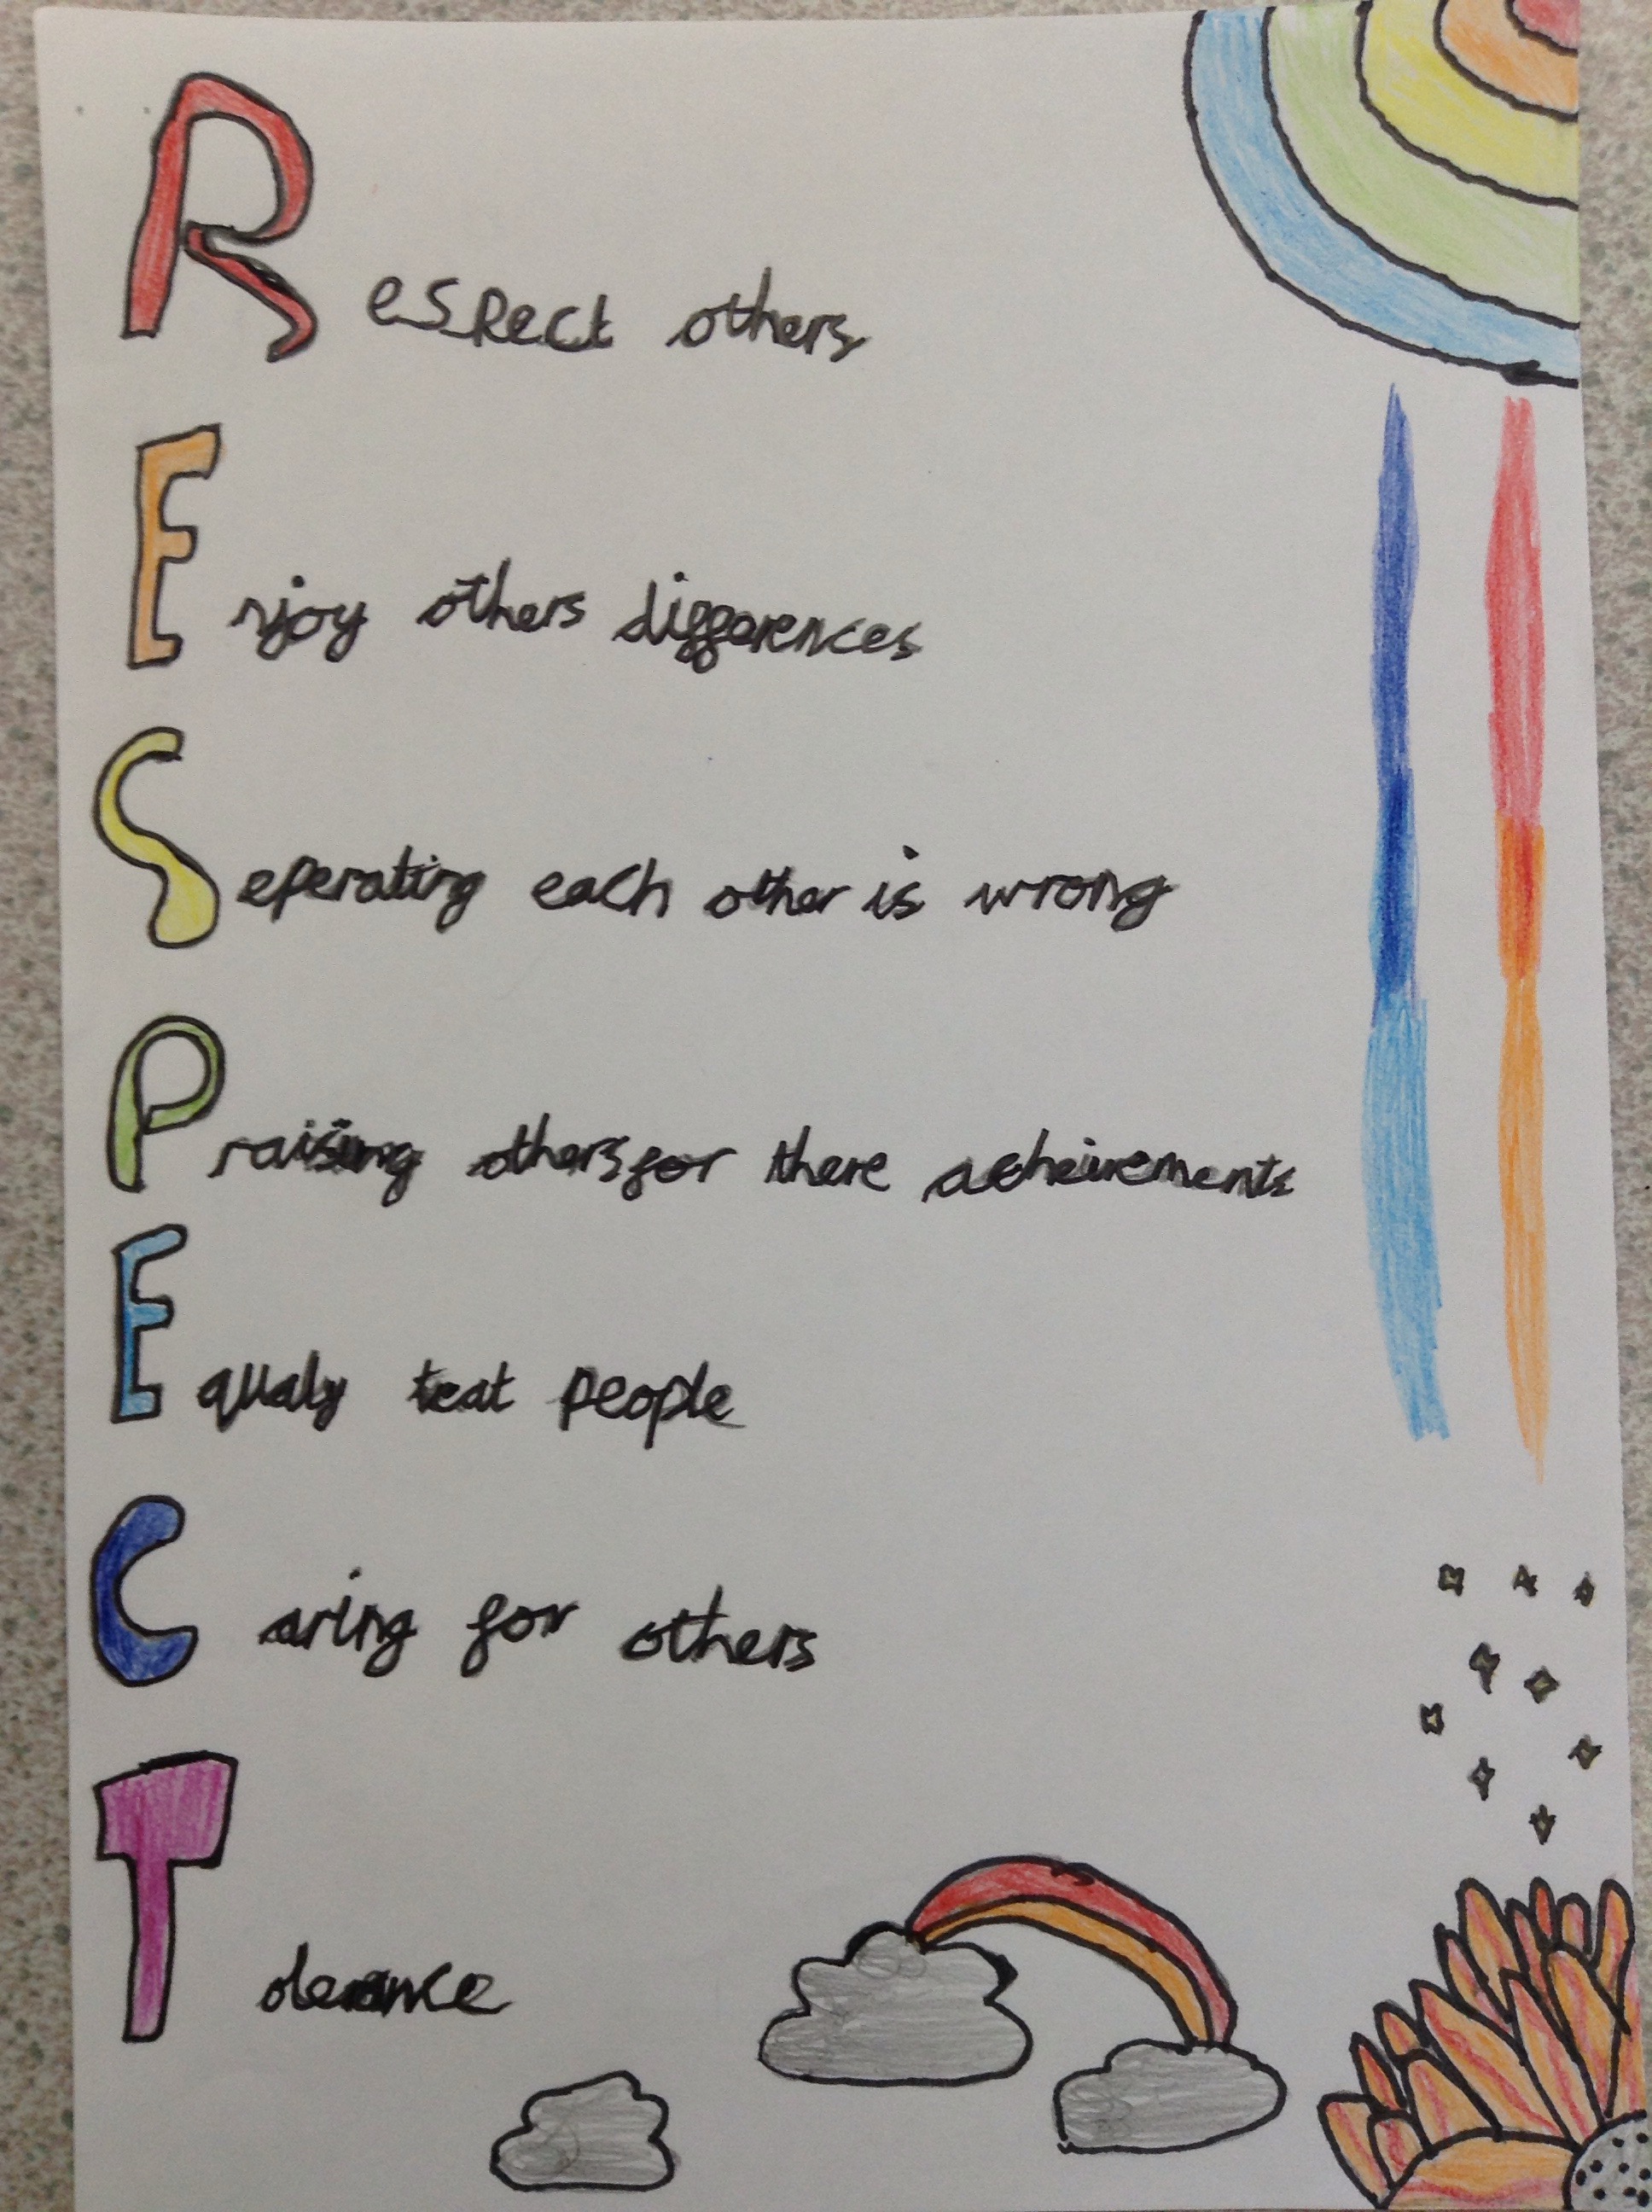 Respect others
Enjoy others differences
Seperating each other is wrong
Praising others for there acheivements
Equaly teat people
Caring for others
Tolerance